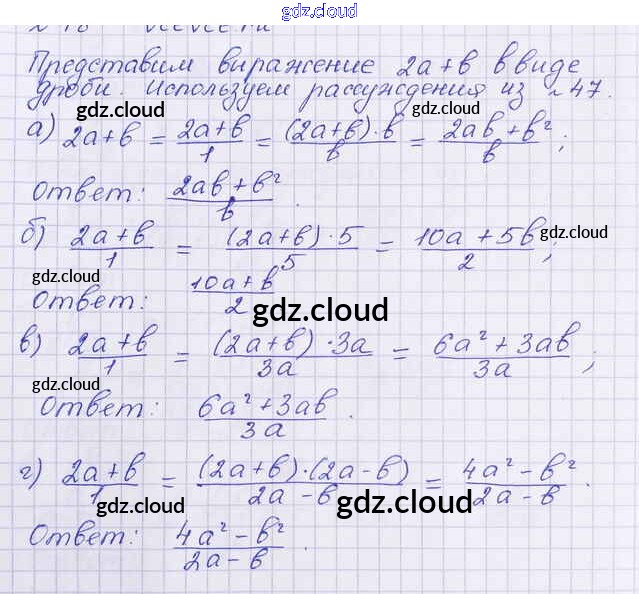 gdz.cloud
Представим выражение 2a+b в виде
дроби. Используем рассуждения из №47.
gdz.cloud gdz.cloud
а) 2a+b = (2a+b)/1 = ((2a+b)·b)/b = (2ab+b²)/b;
Ответ: (2ab+b²)/b.
б) (2a+b)/1 = ((2a+b)·5)/5 = (10a+5b)/2; gdz.cloud
gdz.cloud
Ответ: (10a+b)/2
gdz.cloud
в) (2a+b)/1 = ((2a+b)·3a)/3a = (6a²+3ab)/3a;
gdz.cloud
Ответ: (6a²+3ab)/3a.
г) (2a+b)/1 = ((2a+b)·(2a-b))/(2a-b) = (4a²-b²)/(2a-b).
gdz.cloud gdz.cloud gdz.cloud
Ответ: (4a²-b²)/(2a-b).
gdz.cloud